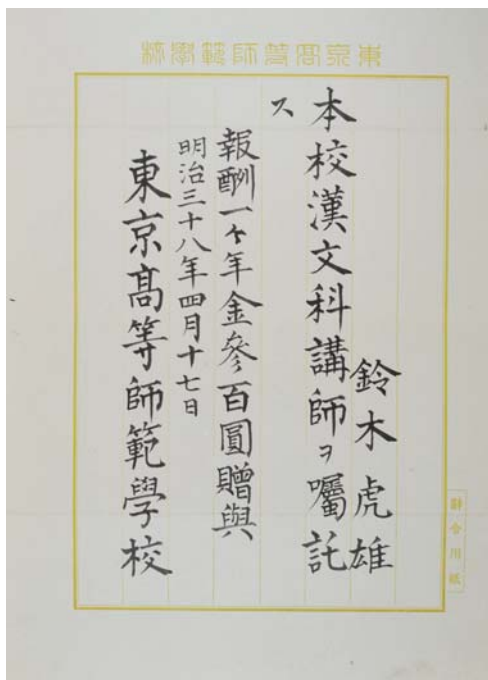 東京高等師範學校
辭令用紙
鈴木虎雄
本校漢文科講師ヲ囑託
ス
報酬一ケ年金參百圓贈與
明治三十八年四月十七日
東京髙等師範學校